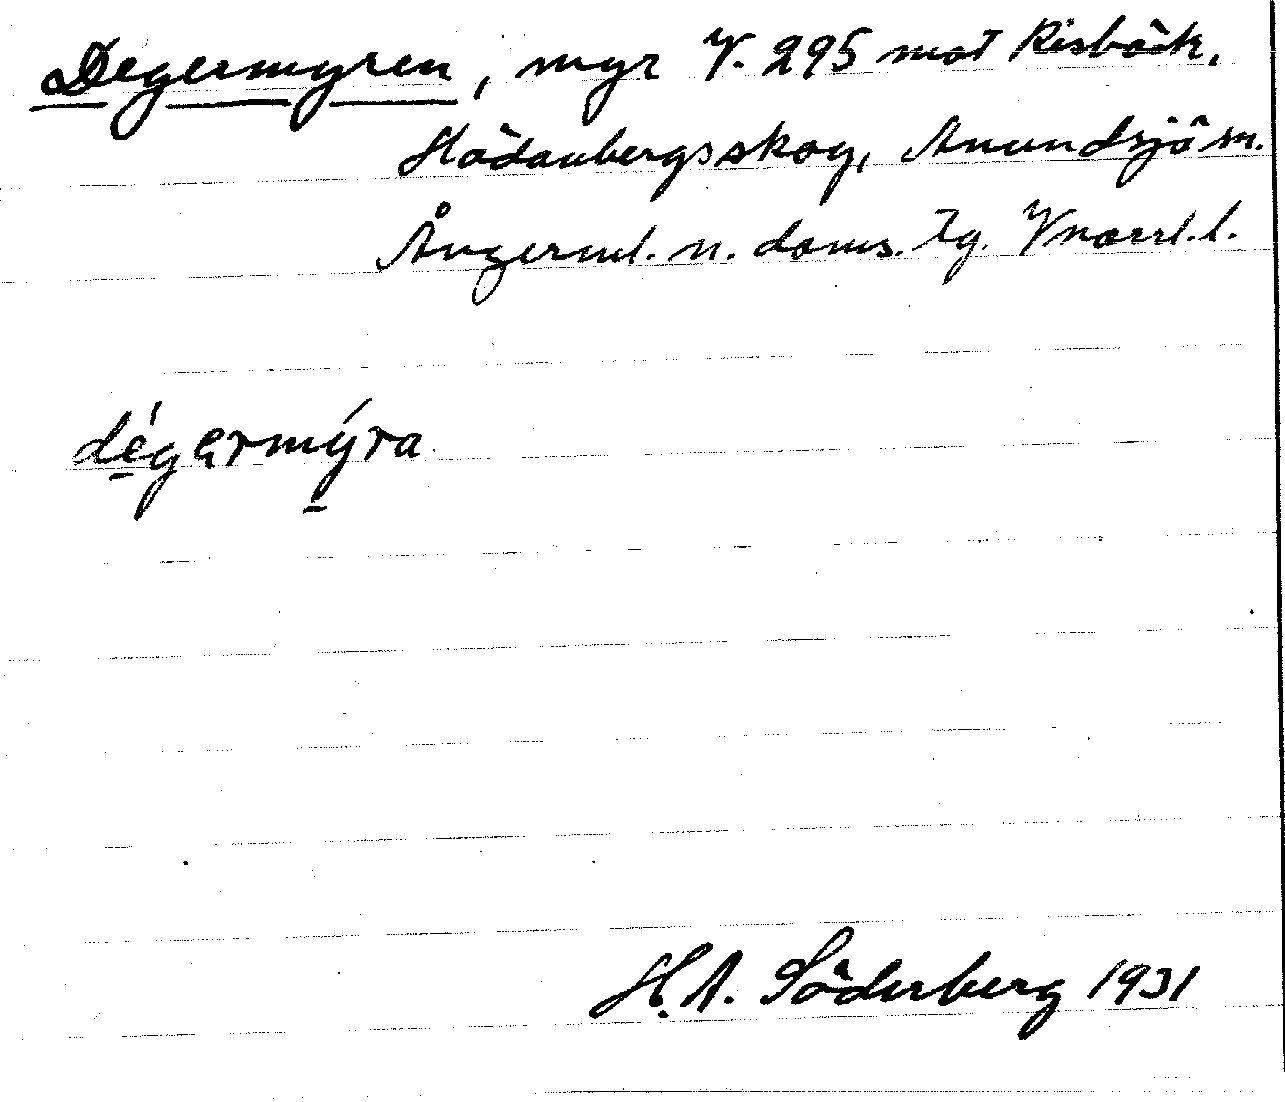 Degermyren, myr V. 295 mot Risbäck,
Hädanbergsskog, Anundsjö sn.
Ångerml. n. doms. tg. Vnorrl. l.
dégermýra
H. A. Söderberg 1931